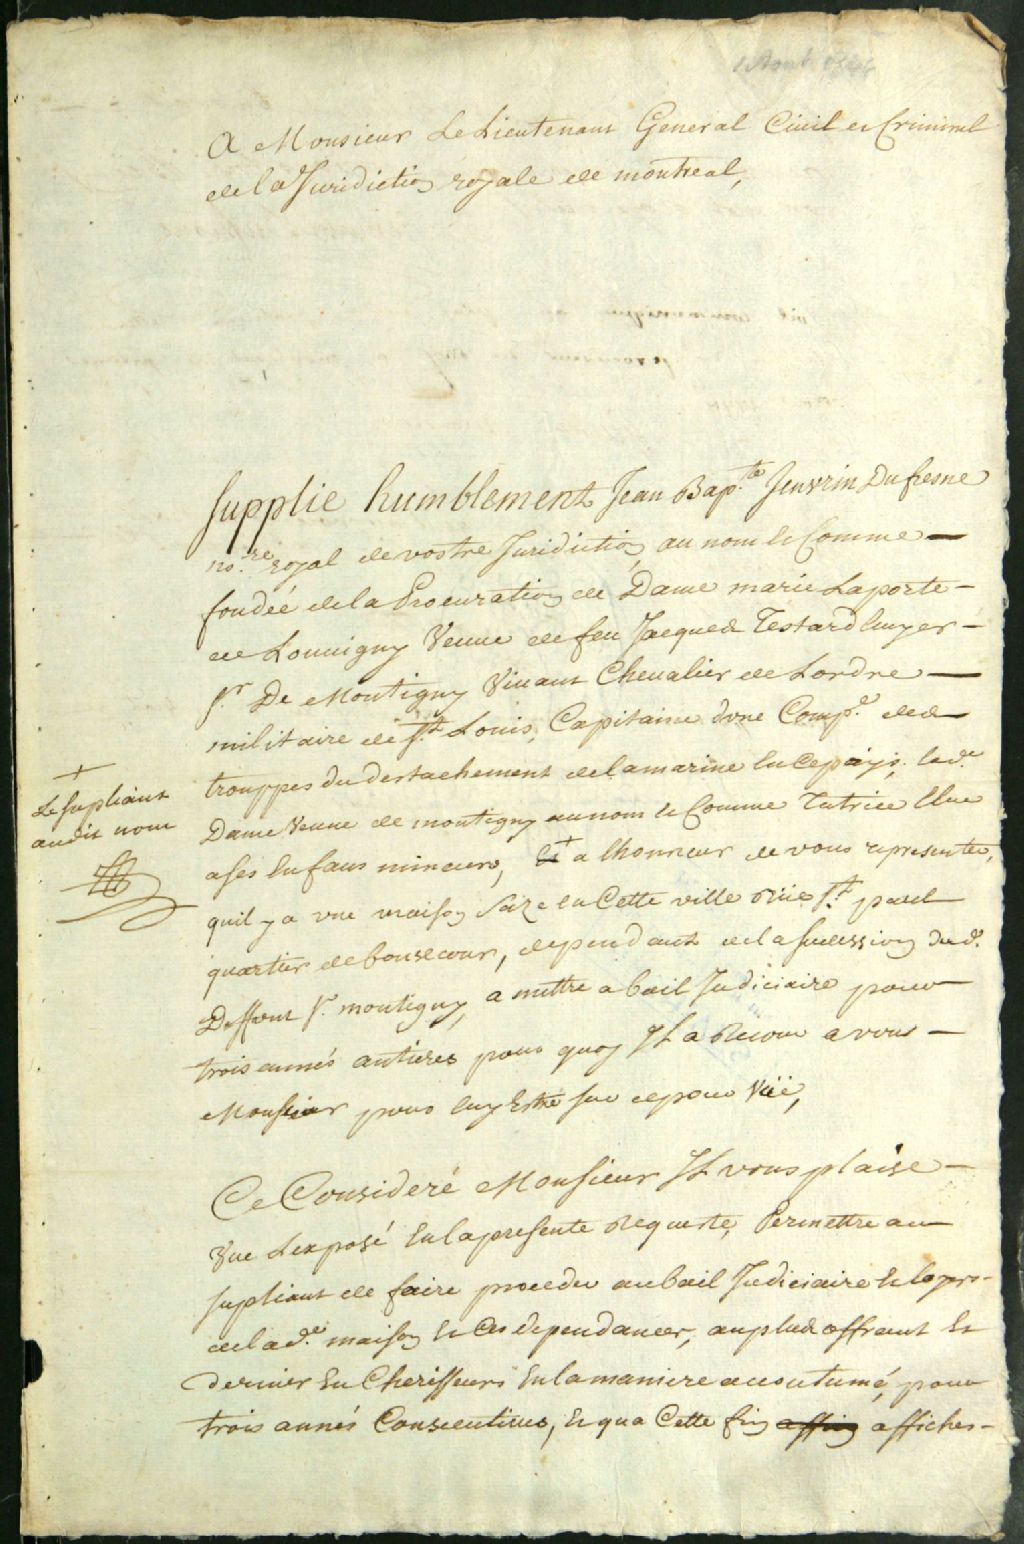 1 Aout
A Monsieur Le Lieutenant General Ciuil et Criminel
de la Juridiction royale de montreal,
Supplie humblement Jean Bap.te Jenvrin Dufresne
no.re royal de vostre Juridiction, au nom & Comme
fondée de la Procuration de Dame marie Laporte
de Louuigny Veuue de feu Jacques Testard Ecuyer
Sr. De Montigny Viuant Cheualier de Lordre
militaire de St. Louis, Capitaine dvne Comp.e des
trouppes du destachement de la marine En ce pays, lad.e
Dame Veuue de montigny au nom & Comme Tutrice Elue
a ses Enfans mineurs, + a lhonneur de vous representer,
+
Le supliant
audit nom
quil y a vne maison Size en Cette ville Rüe St. paul
quartier de bonsecour, dependant de la succession dud.
Deffunt Sr. montigny, a mettre a bail Judiciaire pour
trois annés antieres pour quoy Il a Recour a vous
Monsieur pour luy Estre sur ce pour Vüe,
Ce Consideré Monsieur Il vous plaise
Vue Lexposé En la presente Requeste, Permettre au
supliant de faire proceder au bail Judiciaire &
de lad.e maison & Ces dependances, au plus offrant &
dernier En Cherisseurs En la maniere accoutumé, pour
trois annés Consecutiues, & qua Cette fin affiches